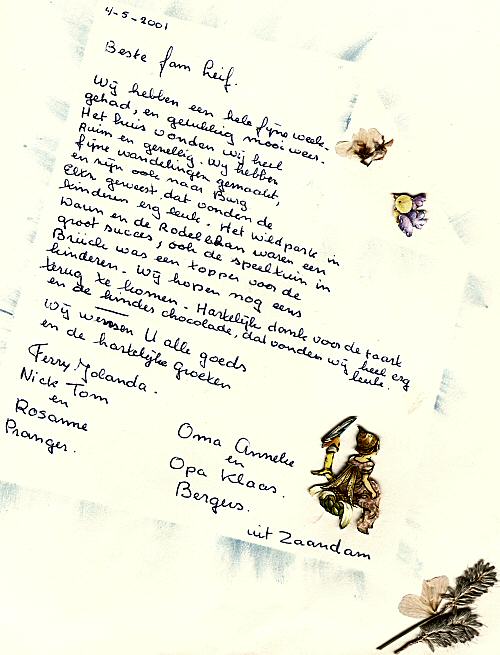 4-5-2001
Beste fam Leif.
Wij hebben een hele fijne week
gehad, en gelukkig mooi weer.
Het huis vonden wij heel
Ruim en gezellig. Wij hebben
fijne wandelingen gemaakt,
en zijn ook naar Burg
Eltz geweest dat vonden de
kinderen erg leuk. Het Wildpark in
Daun en de Rodelbaan waren een
groot succes, ook de speeltuin in
Brück was een topper voor de
kinderen. Wij hopen nog eens
terug te komen. Hartelijk dank voor de taart
en de kinder chocolade, dat vonden wij heel erg
leuk.
Wij wensen U alle goeds
en de hartelijke groeten
Ferry Yolanda.
Nick Tom
en
Rosanne
Pranger.
Oma Anneke
en
Opa Klaas.
Bergers.
uit Zaandam